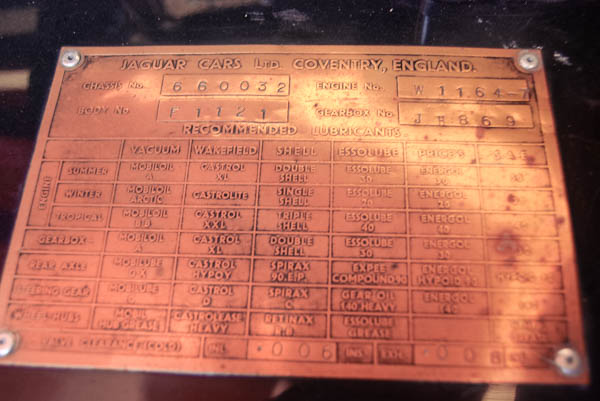 JAGUAR CARS LTD. COVENTRY, ENGLAND.
CHASSIS No. 660032 ENGINE No. W 1164-7
BODY No F1121 GEARBOX No JH869
RECOMMENDED LUBRICANTS
VACUUM WAKEFIELD SHELL ESSOLUBE PRICE'S
ENGINE
SUMMER MOBILOIL A CASTROL XL DOUBLE SHELL ESSOLUBE 30 ENERGOL 30
WINTER MOBILOIL ARCTIC CASTROLITE SINGLE SHELL ESSOLUBE 20 ENERGOL 20
TROPICAL MOBILOIL BB CASTROL XXL TRIPLE SHELL ESSOLUBE 40 ENERGOL 40
GEARBOX MOBILOIL A CASTROL XL DOUBLE SHELL ESSOLUBE 30 ENERGOL 30
REAR AXLE MOBILUBE GX CASTROL HYPOY SPIRAX 90 E.P. EXPEE COMPOUND 90 ENERGOL HYPOID 90
STEERING GEAR MOBILUBE CASTROL D SPIRAX GEAR OIL 140 HEAVY ENERGOL 140
WHEEL HUBS MOBIL HUB GREASE CASTROLEASE HEAVY RETINAX ESSOLUBE GREASE GREASE
VALVE CLEARANCE (COLD) INL. .006 INS. EXH. .008